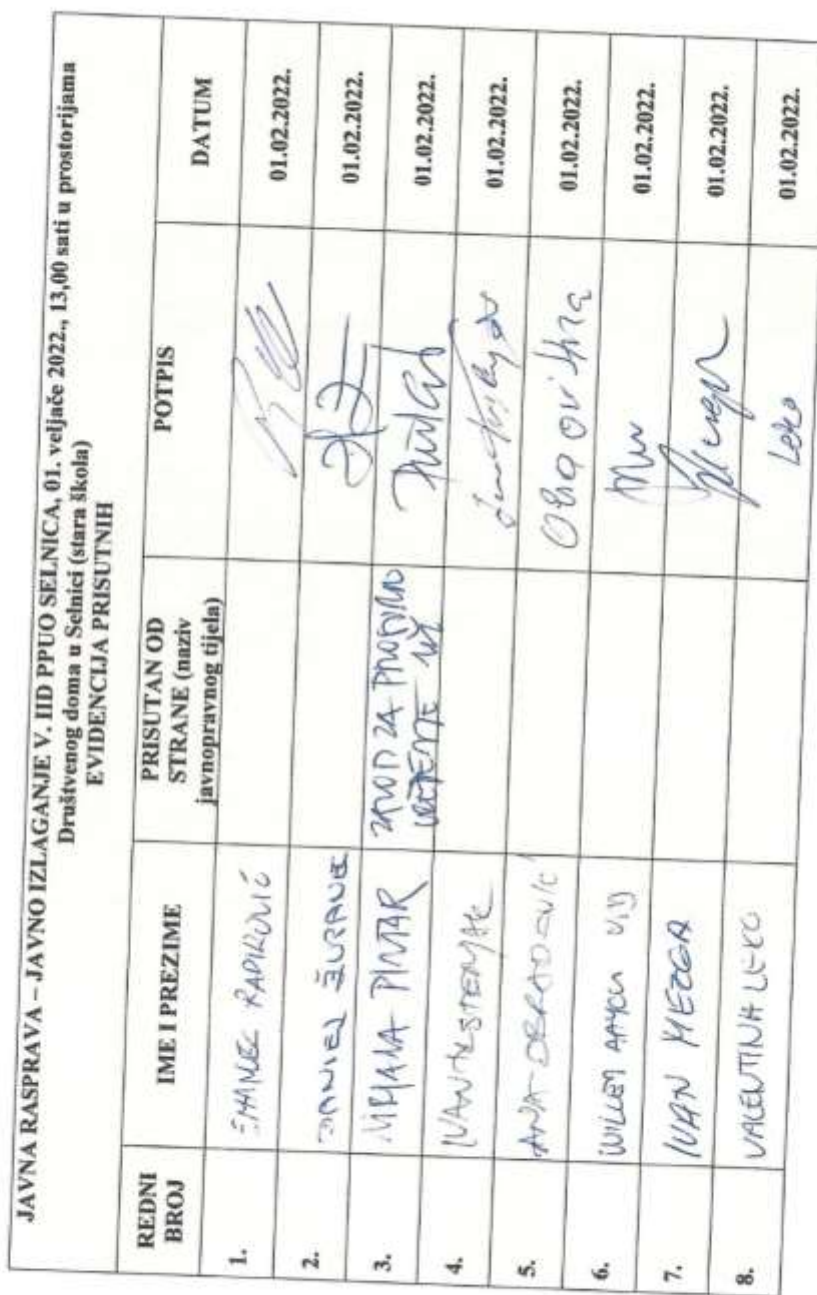 JAVNA RASPRAVA – JAVNO IZLAGANJE V. IID PPUO SELNICA, 01. veljače 2022., 13,00 sati u prostorijama
Društvenog doma u Selnici (stara škola)
EVIDENCIJA PRISUTNIH
REDNI BROJ
IME I PREZIME
PRISUTAN OD STRANE (naziv javnopravnog tijela)
POTPIS
DATUM
1. 01.02.2022.
2. DANIEL 01.02.2022.
3. MIRJANA PINTAR ZAVOD ZA PROSTORNO UREĐENJE Pintar 01.02.2022.
4. 01.02.2022.
5. ANA OBRADOVIĆ 01.02.2022.
6. 01.02.2022.
7. IVAN MEZGA 01.02.2022.
8. VALENTINA LEKO Leko 01.02.2022.